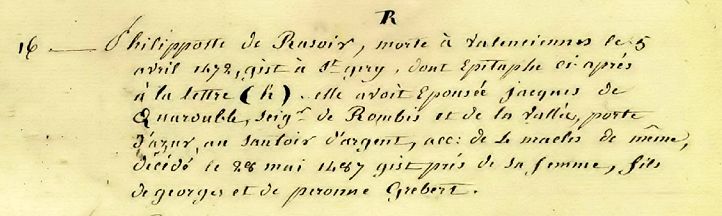 R
16 — Philippotte de Rasoir, morte à Valenciennes le 5
avril 1472, gist à St gery, dont Epitaphe ci après
à la lettre (h). elle avoit Epousée jacques de
Quarouble, seigr. de Rombis et de la Vallée, porte
d'azur au sautoir d'argent, acc: de 4 macles de même,
décédé le 28 mai 1487 gist près de sa femme, fils
de georges et de peronne Grebert.